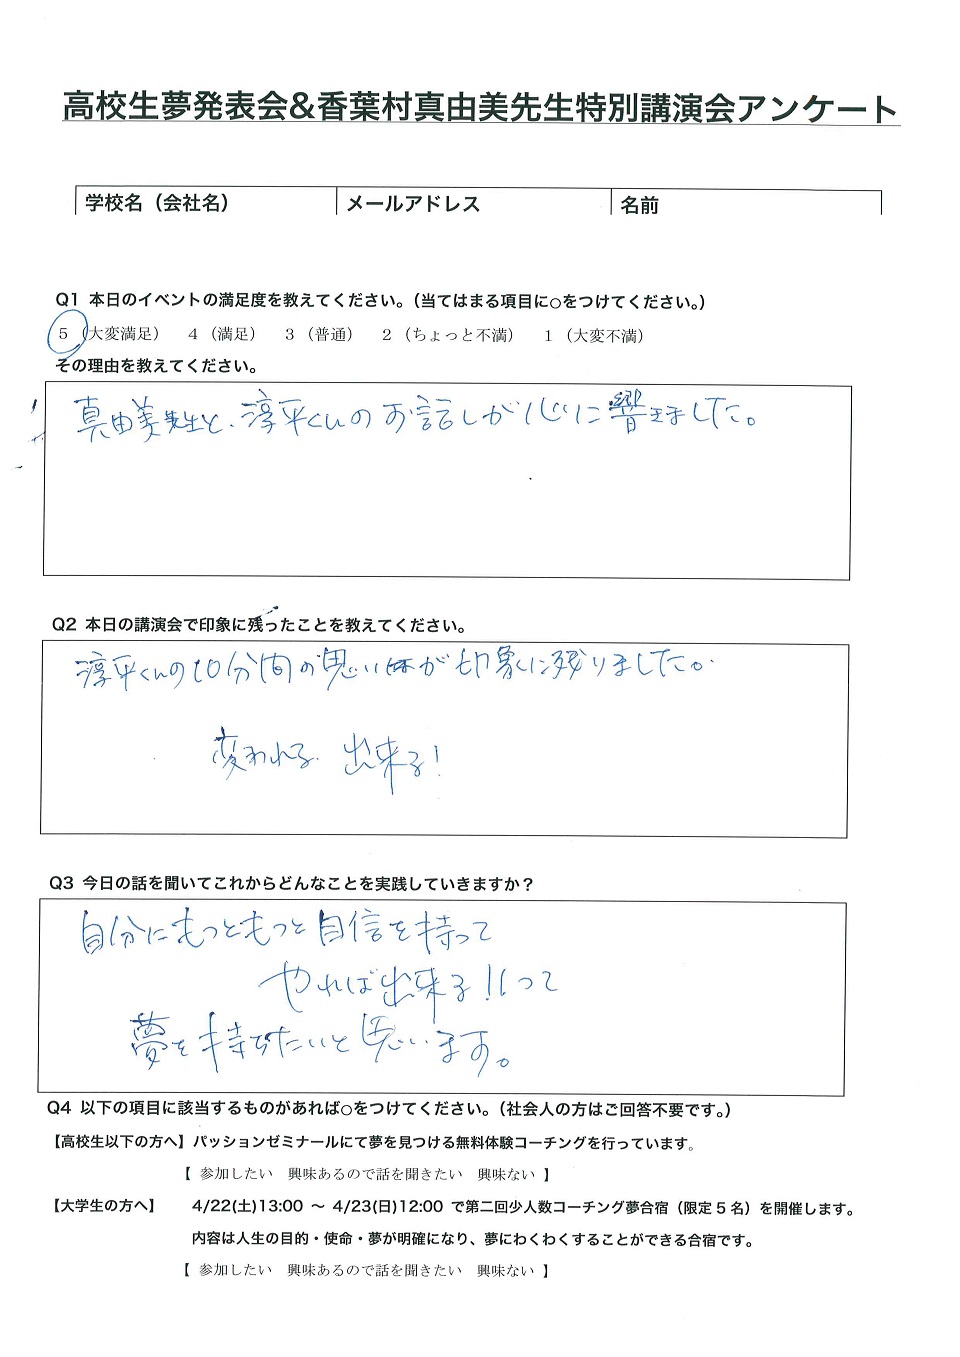 高校生夢発表会&香葉村真由美先生特別講演会アンケート
学校名（会社名） メールアドレス 名前
Q1 本日のイベントの満足度を教えてください。（当てはまる項目に○をつけてください。）
5（大変満足） 4（満足） 3（普通） 2（ちょっと不満） 1（大変不満）
その理由を教えてください。
真由美先生と、淳平くんのお話しが心に響きました。
Q2 本日の講演会で印象に残ったことを教えてください。
淳平くんの10分間の思いが印象に残りました。
変われる 出来る!
Q3 今日の話を聞いてこれからどんなことを実践していきますか？
自分にもっともっと自信を持って
やれば出来る!!って
夢を持ちたいと思います。
Q4 以下の項目に該当するものがあれば○をつけてください。（社会人の方はご回答不要です。）
【高校生以下の方へ】パッションゼミナールにて夢を見つける無料体験コーチングを行っています。
【 参加したい 興味あるので話を聞きたい 興味ない 】
【大学生の方へ】 4/22(土)13:00 〜 4/23(日)12:00 で第二回少人数コーチング夢合宿（限定５名）を開催します。
内容は人生の目的・使命・夢が明確になり、夢にわくわくすることができる合宿です。
【 参加したい 興味あるので話を聞きたい 興味ない 】